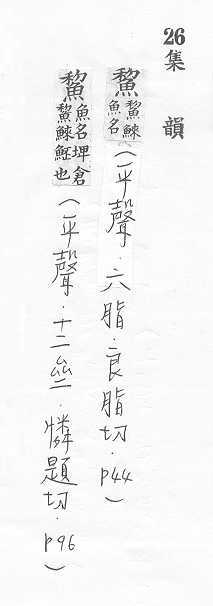 26集韻
鯬鯬鯠魚名(平聲．六脂．良脂切．p44)
鯬魚名埤倉鯬鯠也(平聲．十二．憐題切．p96)